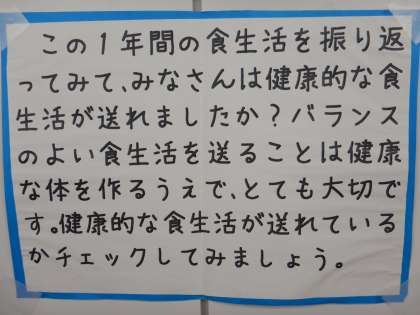 この１年間の食生活を振り返
ってみて、みなさんは健康的な食
生活が送れましたか？バランス
のよい食生活を送ることは健康
な体を作るうえで、とても大切で
す。健康的な食生活が送れている
かチェックしてみましょう。